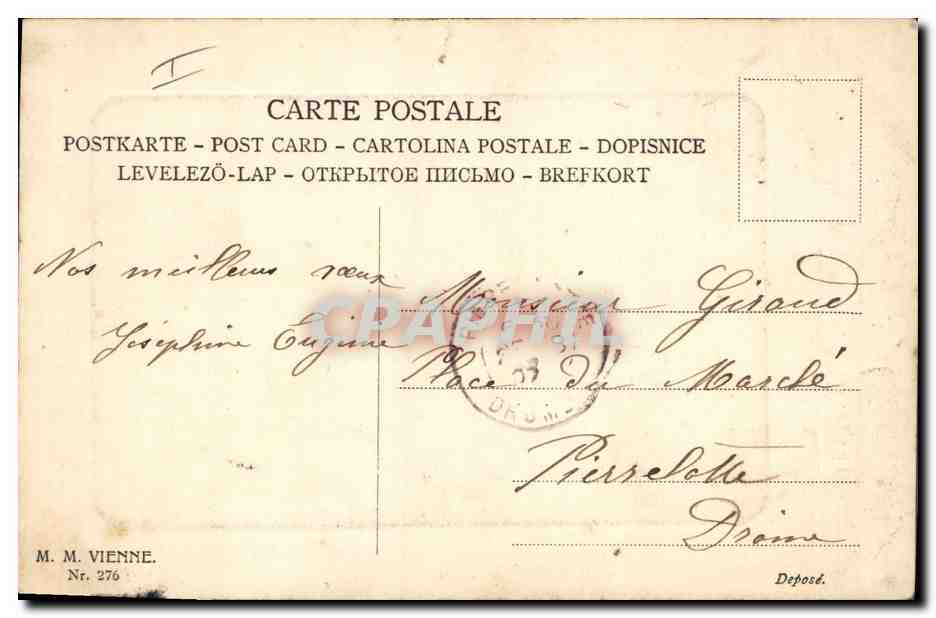 I
CARTE POSTALE
POSTKARTE – POST CARD – CARTOLINA POSTALE – DOPISNICE
LEVELEZÖ-LAP – ОТКРЫТОЕ ПИСЬМО – BREFKORT
Nos meilleurs vœux
Joséphine Eugène
Monsieur Giraud
Place du Marché
Pierrelatte
Drôme
CPAPHIL
DROME
M. M. VIENNE.
Nr. 276
Deposé.